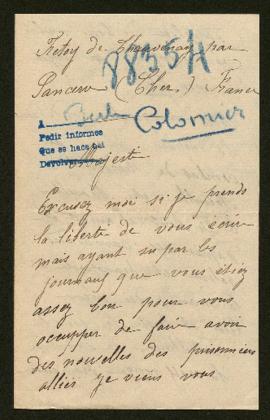 Retoy de Thauvenay par
8835/4
Sancerre (Cher) France
A Berlin
Colomier
Pedir informes
Que se hace
Devolver
Majesté
Excusez moi si je prends
la liberté de vous écrire
mais ayant su par les
journaux que vous étiez
assez bon pour vous
occupper de faire avoir
des nouvelles des prisonniers
alliés je viens vous